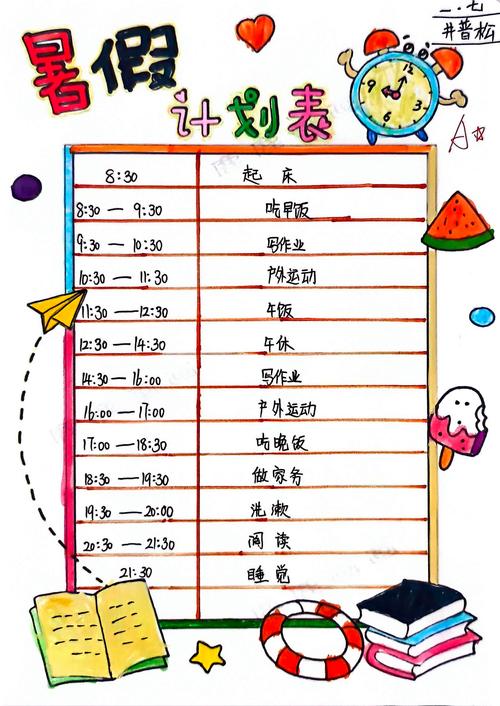 二.七
井普松
暑假
计划表
A☆
8:30 起床
8:30 — 9:30 吃早饭
9:30 — 10:30 写作业
10:30 — 11:30 户外运动
11:30 — 12:30 午饭
12:30 — 14:30 午休
14:30 — 16:00 写作业
16:00 — 17:00 户外运动
17:00 — 18:30 吃晚饭
18:30 — 19:30 做家务
19:30 — 20:00 洗漱
20:30 — 21:30 阅读
21:30 睡觉